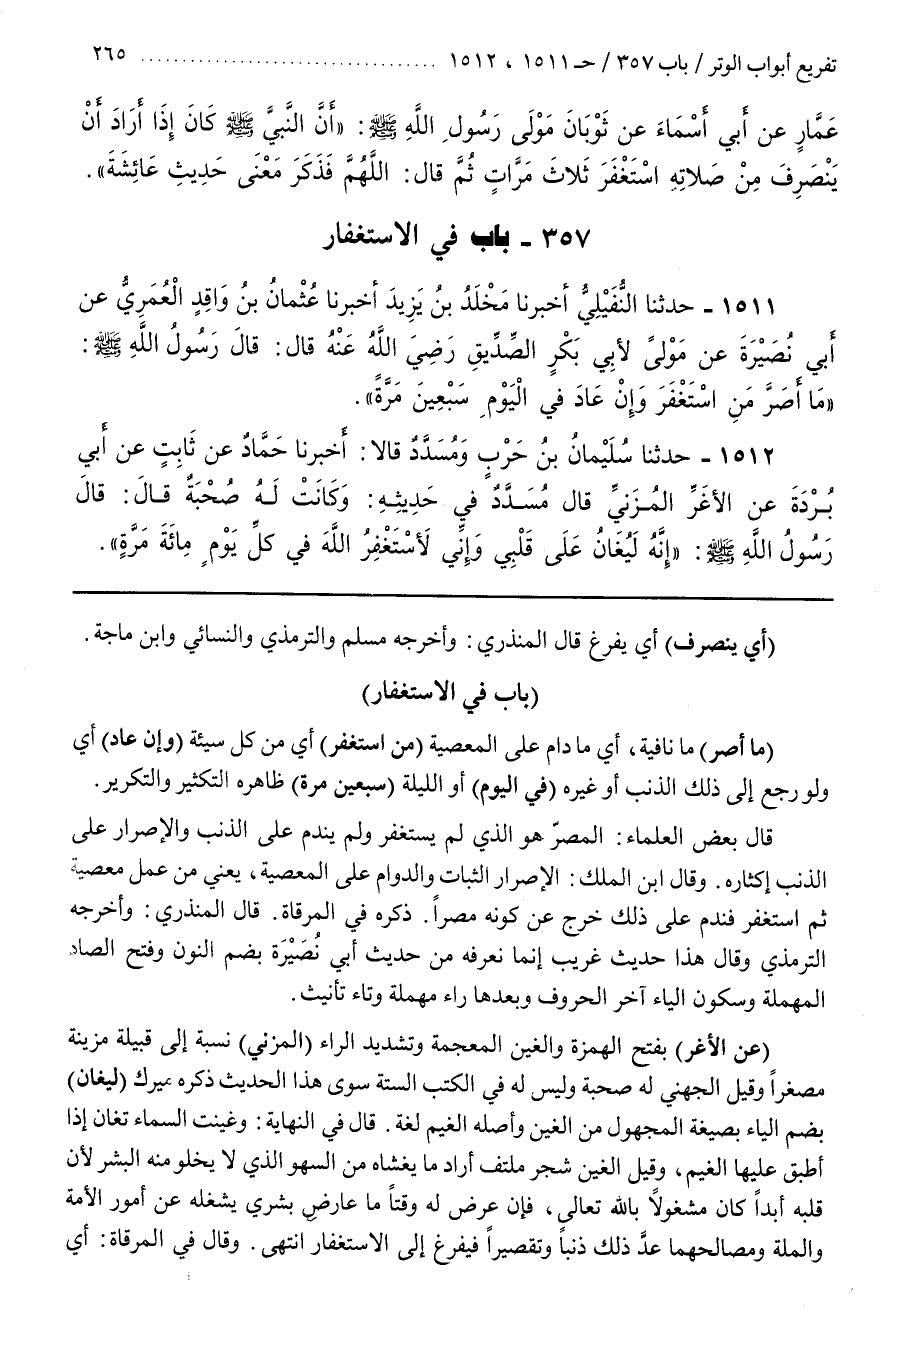 تفريع أبواب الوتر / باب ٣٥٧ / حـ ١٥١١ ، ١٥١٢ .................................. ٢٦٥
عَمَّارٍ عن أبي أَسْمَاءَ عن ثَوْبَانَ مَوْلَى رَسُولِ اللَّهِ ﷺ: «أنَّ النَّبيَّ ﷺ كَانَ إِذَا أَرَادَ أنْ
يَنْصَرِفَ مِنْ صَلاتِهِ اسْتَغْفَرَ ثَلاثَ مَرَّاتٍ ثُمَّ قال: اللَّهُمَّ فَذَكَرَ مَعْنَى حَدِيثِ عَائِشَةَ».
٣٥٧ ـ باب في الاستغفار
١٥١١ ـ حدثنا النُّفَيْلِيُّ أخبرنا مَخْلَدُ بنُ يَزِيدَ أخبرنا عُثْمانُ بنُ وَاقِدٍ الْعُمَرِيُّ عن
أَبي نُصَيْرَةَ عن مَوْلىً لأبي بَكْرٍ الصِّدِّيقِ رَضِيَ اللَّهُ عَنْهُ قال: قالَ رَسُولُ اللَّهِ ﷺ:
«مَا أَصَرَّ مَنِ اسْتَغْفَرَ وَإِنْ عَادَ في الْيَوْمِ سَبْعِينَ مَرَّةً».
١٥١٢ ـ حدثنا سُلَيْمانُ بنُ حَرْبٍ وَمُسَدَّدٌ قالا: أخبرنا حَمَّادٌ عن ثَابِتٍ عن أبي
بُرْدَةَ عن الأغَرِّ المُزَنيِّ قال مُسَدَّدٌ في حَدِيثِهِ: وَكَانَتْ لَهُ صُحْبَةٌ قالَ: قالَ
رَسُولُ اللَّهِ ﷺ: «إنَّهُ لَيُغَانُ عَلَى قَلْبِي وَإِنِّي لَأَسْتَغْفِرُ اللَّهَ في كلِّ يَوْمٍ مِائَةَ مَرَّةٍ».
(أي ينصرف) أي يفرغ قال المنذري: وأخرجه مسلم والترمذي والنسائي وابن ماجة.
(باب في الاستغفار)
(ما أصر) ما نافية، أي ما دام على المعصية (من استغفر) أي من كل سيئة (وإن عاد) أي
ولو رجع إلى ذلك الذنب أو غيره (في اليوم) أو الليلة (سبعين مرة) ظاهره التكثير والتكرير.
قال بعض العلماء: المصرّ هو الذي لم يستغفر ولم يندم على الذنب والإصرار على
الذنب إكثاره. وقال ابن الملك: الإصرار الثبات والدوام على المعصية، يعني من عمل معصية
ثم استغفر فندم على ذلك خرج عن كونه مصراً. ذكره في المرقاة. قال المنذري: وأخرجه
الترمذي وقال هذا حديث غريب إنما نعرفه من حديث أبي نُصَيْرَة بضم النون وفتح الصاد
المهملة وسكون الياء آخر الحروف وبعدها راء مهملة وتاء تأنيث.
(عن الأغر) بفتح الهمزة والغين المعجمة وتشديد الراء (المزني) نسبة إلى قبيلة مزينة
مصغراً وقيل الجهني له صحبة وليس له في الكتب الستة سوى هذا الحديث ذكره ميرك (ليغان)
بضم الياء بصيغة المجهول من الغين وأصله الغيم لغة. قال في النهاية: وغينت السماء تغان إذا
أطبق عليها الغيم، وقيل الغين شجر ملتف أراد ما يغشاه من السهو الذي لا يخلو منه البشر لأن
قلبه أبداً كان مشغولاً بالله تعالى، فإن عرض له وقتاً ما عارض بشري يشغله عن أمور الأمة
والملة ومصالحهما عدَّ ذلك ذنباً وتقصيراً فيفرغ إلى الاستغفار انتهى. وقال في المرقاة: أي